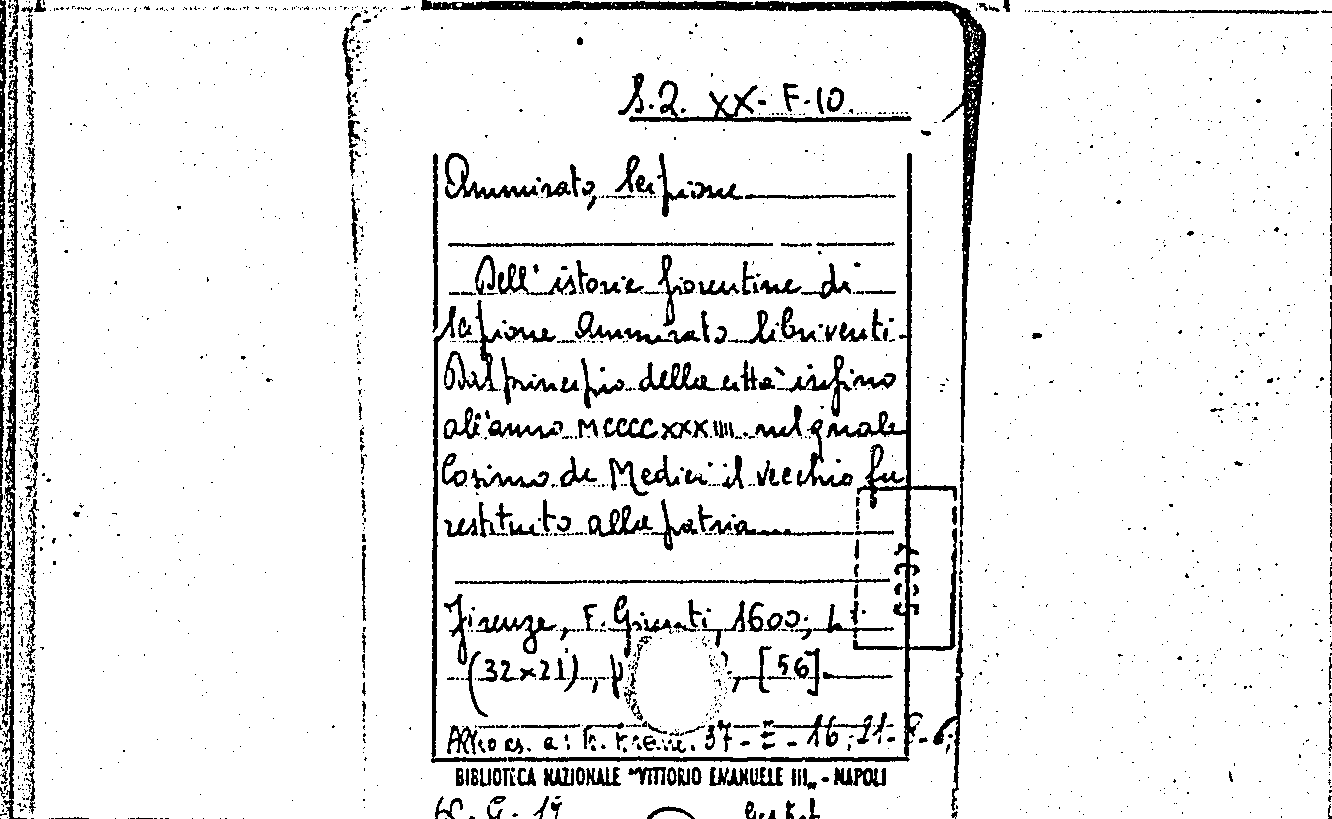 S.Q. XX- F-10.
Ammirato, Scipione
Dell'istorie fiorentine di
Scipione Ammirato libri venti.
Dal principio della città infino
all'anno MCCCCXXXIIII nel quale
Cosimo de Medici il vecchio fu
restituito alla patria
Firenze, F. Giunti, 1600;
(32x21), , [56].
Altro es. a: 37-E-16; 21-
BIBLIOTECA NAZIONALE "VITTORIO EMANUELE III„ - NAPOLI